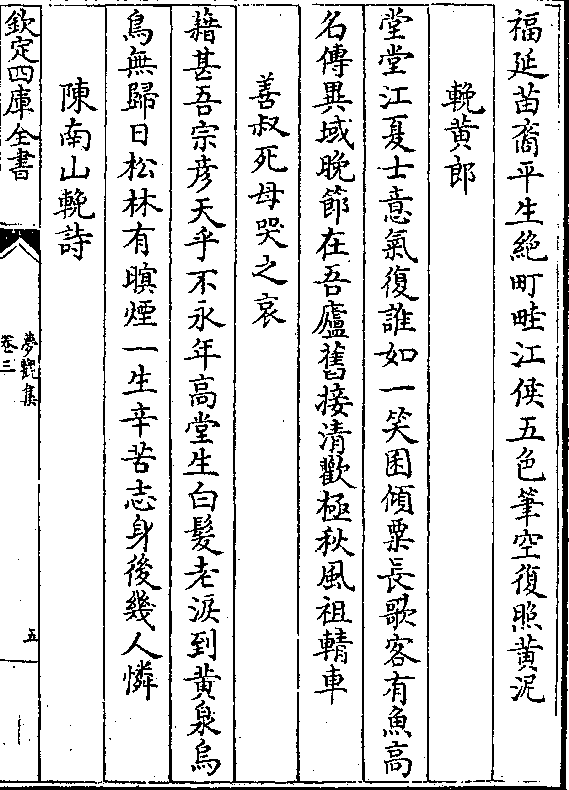 福延苗裔平生絶町畦江侯五色筆空復照黄泥
輓黄郎
堂堂江夏士意氣復誰如一笑囷傾粟長歌客有魚高
名傳異域晚節在吾廬舊接清歡極秋風祖輤車
善叔死母哭之哀
藉甚吾宗彦天乎不永年高堂生白髪老淚到黄泉烏
鳥無歸日松林有暝煙一生辛苦志身後幾人憐
陳南山輓詩
欽定四庫全書
夢觀集
卷三
五